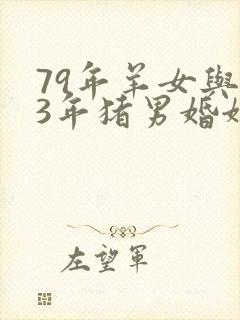 79年羊女與
3年猪男婚
左望軍